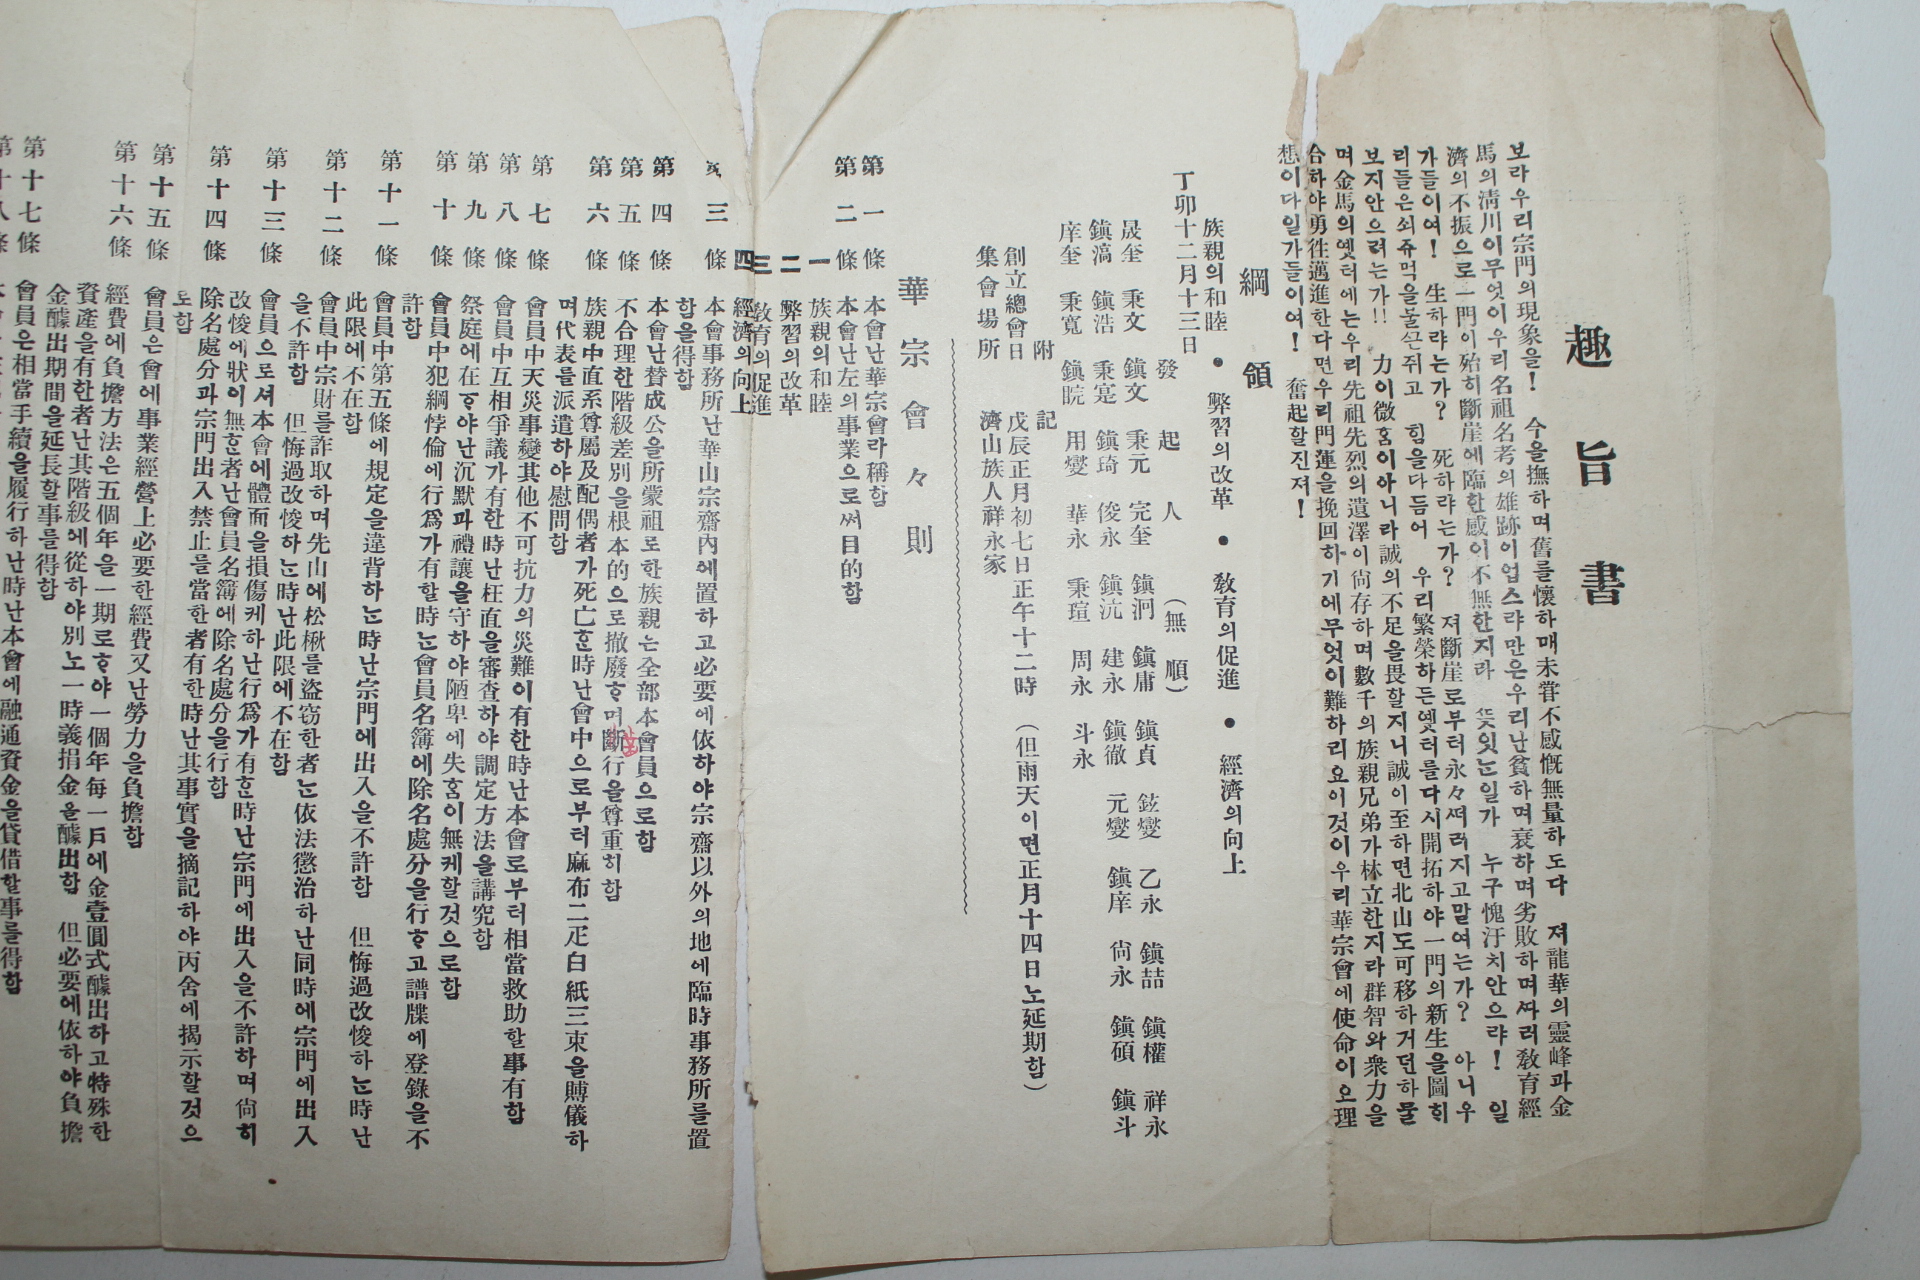 趣旨書
보라우리宗門의現象을! 今을撫하며舊를懷하매未甞不感慨無量하도다 져龍華의靈峰과金
馬의淸川이무엇이우리名祖名考의雄跡이업스랴만은우리난貧하며衰하며劣敗하며싸러敎育經
濟의不振으로一門이殆히斷崖에臨한感이不無한지라 뜻잇는일가 누구愧汙치안으랴! 일
가들이여! 生하랴는가? 死하랴는가? 져斷崖로부터永々떠러지고말여는가? 아니우
리들은쇠쥬먹을불끈쥐고 힘을다듬어 우리繁榮하든옛터를다시開拓하야一門의新生을圖회
보지안으려는가!! 力이微홈이아니라誠의不足을畏할지니誠이至하면北山도可移하거던하물
며金馬의옛터에는우리先祖先烈의遺澤이尙存하며數千의族親兄弟가林立한지라群智와衆力을
合하야勇徃邁進한다면우리門運을挽回하기에무엇이難하리요이것이우리華宗會에使命이오理
想이다일가들이여! 奮起할진져!
綱領
族親의和睦 ● 弊習의改革 ● 敎育의促進 ● 經濟의向上
丁卯十二月十三日
發起人 (無順)
晟奎 秉文 鎭文 秉元 完奎 鎭泂 鎭庸 鎭貞 鉉燮 乙永 鎭喆 鎭權 祥永
鎭滈 鎭浩 秉寔 鎭琦 俊永 鎭沆 建永 鎭徹 元燮 鎭庠 尙永 鎭碩 鎭斗
庠奎 秉寬 鎭晥 用燮 華永 秉瑄 周永 斗永
附記
創立總會日 戊辰正月初七日正午十二時 (但雨天이면正月十四日노延期함)
集會場所 濟山族人祥永家
華宗會々則
第一條 本會난華宗會라稱함
第二條 本會난左의事業으로써目的함
一 族親의和睦
二 弊習의改革
三 敎育의促進
四 經濟의向上
第三條 本會事務所난華山宗齋內에置하고必要에依하야宗齋以外의地에臨時事務所를置
함을得함
第四條 本會난賛成公을所蒙祖로한族親는全部本會員으로함
第五條 不合理한階級差別을根本的으로撤廢ᄒᆞ며斷行을尊重히함
第六條 族親中直系尊屬及配偶者가死亡ᄒᆞᆫ時난會中으로부터麻布二疋白紙三束을賻儀하
며代表를派遣하야慰問함
第七條 會員中天災事變其他不可抗力의災難이有한時난本會로부터相當救助할事有함
第八條 會員中互相爭議가有한時난枉直을審査하야調定方法을講究함
第九條 祭庭에在ᄒᆞ야난沉默과禮讓을守하야陋卑에失홈이無케할것으로함
第十條 會員中犯綱悖倫에行爲가有할時는會員名簿에除名處分을行ᄒᆞ고譜牒에登錄을不
許함
第十一條 會員中第五條에規定을違背하는時난宗門에出入을不許함 但悔過改悛하는時난
此限에不在함
第十二條 會員中宗財를詐取하며先山에松楸를盜窃한者는依法懲治하난同時에宗門에出入
을不許함 但悔過改悛하는時난此限에不在함
第十三條 會員으로셔本會에體面을損傷케하난行爲가有ᄒᆞᆫ時난宗門에出入을不許하며尙히
改悛에狀이無ᄒᆞᆫ者난會員名簿에除名處分을行함
第十四條 除名處分과宗門出入禁止를當한者有한時난其事實을摘記하야丙舍에揭示할것으
로함
第十五條 會員은會에事業經營上必要한經費又난勞力을負擔함
第十六條 經費에負擔方法은五個年을一期로ᄒᆞ야一個年每一戶에金壹圓式醵出하고特殊한
資產을有한者난其階級에從하야別노一時義捐金을醵出함 但必要에依하야負擔
金醵出期間을延長할事를得함
第十七條 會員은相當手續을履行하난時난本會에融通資金을貸借할事를得함
第十八條